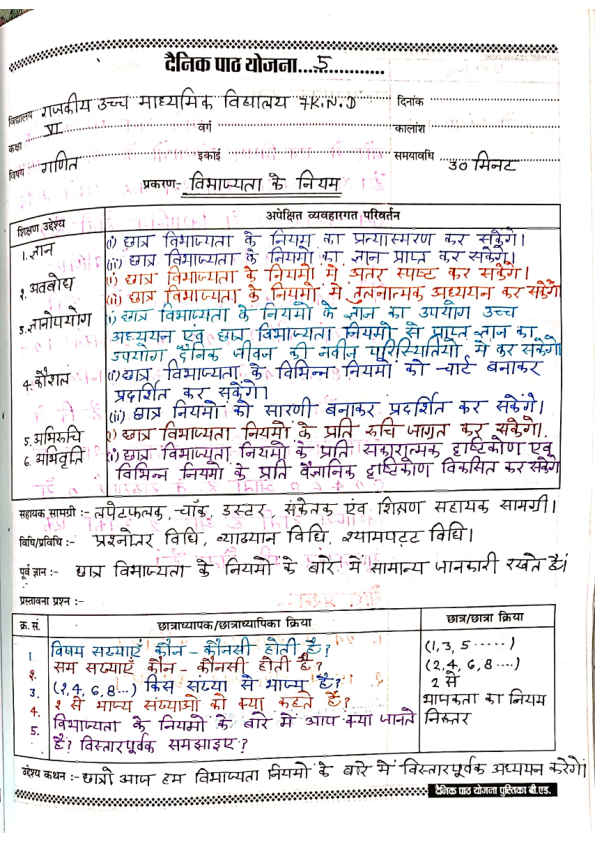 दैनिक पाठ योजना...5...
विद्यालय राजकीय उच्च माध्यमिक विद्यालय 7K.N.D दिनांक
कक्षा VI वर्ग कालांश
विषय गणित इकाई समयावधि 30 मिनट
प्रकरण:- विभाज्यता के नियम
शिक्षण उद्देश्य अपेक्षित व्यवहारगत परिवर्तन
1. ज्ञान (i) छात्र विभाज्यता के नियम का प्रत्यास्मरण कर सकेंगे।
(ii) छात्र विभाज्यता के नियमों का ज्ञान प्राप्त कर सकेंगे।
२. अवबोध (i) छात्र विभाज्यता के नियमों में अंतर स्पष्ट कर सकेंगे।
(ii) छात्र विभाज्यता के नियमों में तुलनात्मक अध्ययन कर सकेंगे
3. ज्ञानोपयोग (i) छात्र विभाज्यता के नियमों के ज्ञान का उपयोग उच्च
अध्ययन एवं छात्र विभाज्यता नियमों से प्राप्त ज्ञान का
उपयोग दैनिक जीवन की नवीन परिस्थितियों में कर सकेंगे
4. कौशल (i) छात्र विभाज्यता के विभिन्न नियमों को चार्ट बनाकर
प्रदर्शित कर सकेंगे।
(ii) छात्र नियमों को सारणी बनाकर प्रदर्शित कर सकेंगे।
5. अभिरुचि i) छात्र विभाज्यता नियमों के प्रति रुचि जागृत कर सकेंगे।
6. अभिवृत्ति (i) छात्र विभाज्यता नियमों के प्रति सकारात्मक दृष्टिकोण एवं
विभिन्न नियमों के प्रति वैज्ञानिक दृष्टिकोण विकसित कर सकेंगे
सहायक सामग्री :- लपेटफलक, चॉक, डस्टर, संकेतक एंव शिक्षण सहायक सामग्री।
विधि/प्रविधि :- प्रश्नोतर विधि, व्याख्यान विधि, श्यामपट्ट विधि।
पूर्व ज्ञान :- छात्र विभाज्यता के नियमों के बारे में सामान्य जानकारी रखते है।
प्रस्तावना प्रश्न :-
क्र.सं. छात्राध्यापक/छात्राध्यापिका क्रिया छात्र/छात्रा क्रिया
1. विषम सख्याएँ कौन - कौनसी होती है? (1, 3, 5 ......)
२. सम सख्याएँ कौन - कौनसी होती है? (2, 4, 6, 8 ....)
3. (२, 4, 6, 8...) किस संख्या से भाज्य है? 2 से
4. २ से भाज्य संख्याओं को क्या कहते हैं? भाजकता का नियम
5. विभाज्यता के नियमों के बारे में आप क्या जानते निरूत्तर
है? विस्तारपूर्वक समझाइए?
उद्देश्य कथन :- छात्रो आज हम विभाज्यता नियमों के बारे में विस्तारपूर्वक अध्ययन करेगें।
दैनिक पाठ योजना पुस्तिका बी.एड.